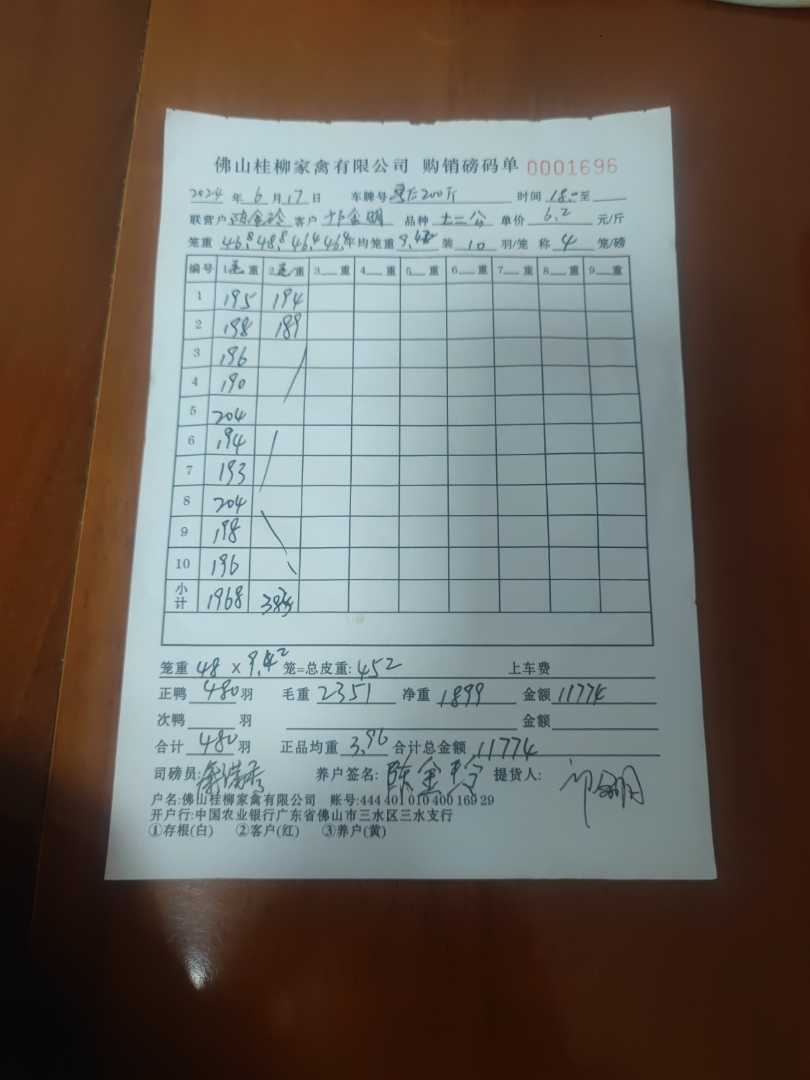 佛山桂柳家禽有限公司 购销磅码单 0001696
2024 年 6 月 17 日 车牌号 200斤 时间 18:0 至
联营户 陈金玲 客户 品种 土二公 单价 6.2 元/斤
笼重 46.8 48.8 46.4 46.4 平均笼重 9.42 装 10 羽/笼 称 4 笼/磅
编号 1 毛 重 2 毛 重 3 重 4 重 5 重 6 重 7 重 8 重 9 重
1 195 194
2 198 189
3 196
4 190
5 204
6 194
7 193
8 204
9 198
10 196
小计 1968 383
笼重 48 × 9.42 笼=总皮重: 452 上车费
正鸭 480 羽 毛重 2351 净重 1899 金额 11774
次鸭 羽 金额
合计 480 羽 正品均重 3.96 合计总金额 11774
司磅员: 养户签名: 陈金玲 提货人:
户名:佛山桂柳家禽有限公司 账号:444 401 010 400 169 29
开户行:中国农业银行广东省佛山市三水区三水支行
①存根(白) ②客户(红) ③养户(黄)